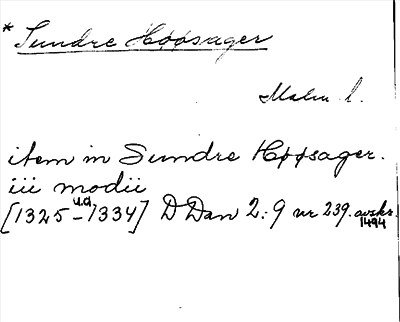 * Sundre Høøsager
Malm l.
item in Sundre Høøsager.
iii modii
[1325 u.d. - 1334] D Dan 2: 9 nr 239. avskr. 1494